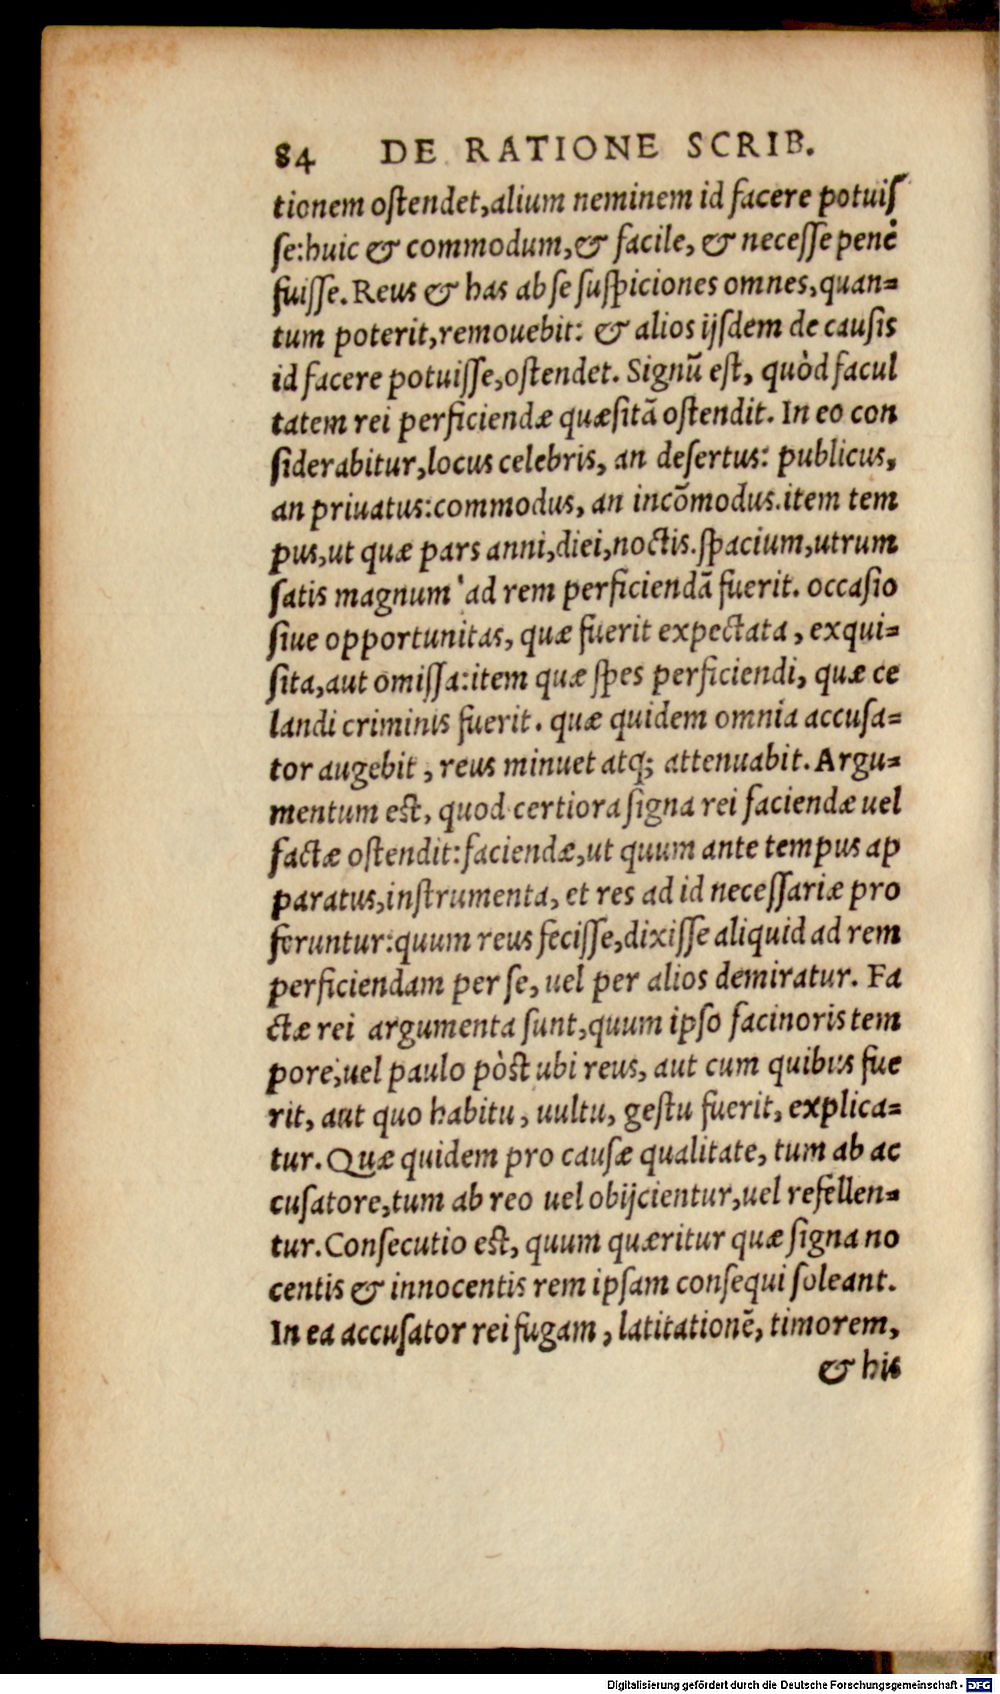 84 DE RATIONE SCRIB.
tionem oſtendet,alium neminem id facere potuiſ
ſe:huic & commodum,& facile, & neceſſe penè
fuiſſe. Reus & has ab ſe ſuſpiciones omnes,quan=
tum poterit,remouebit: & alios ijſdem de cauſis
id facere potuiſſe,oſtendet. Signũ eſt, quòd facul
tatem rei perficiendæ quæſitã oſtendit. In eo con
ſiderabitur,locus celebris, an deſertus: publicus,
an priuatus:commodus, an incõmodus.item tem
pus,ut quæ pars anni,diei,noctis.ſpacium,utrum
ſatis magnum ad rem perficiendã fuerit. occaſio
ſiue opportunitas, quæ fuerit expectata, exqui=
ſita,aut omiſſa:item quæ ſpes perficiendi, quæ ce
landi criminis fuerit. quæ quidem omnia accuſa=
tor augebit, reus minuet atq; attenuabit. Argu=
mentum eſt, quod certiora ſigna rei faciendæ uel
factæ oſtendit:faciendæ,ut quum ante tempus ap
paratus,inſtrumenta, et res ad id neceſſariæ pro
feruntur:quum reus feciſſe,dixiſſe aliquid ad rem
perficiendam per ſe, uel per alios demiratur. Fa
ctæ rei argumenta ſunt,quum ipſo facinoris tem
pore,uel paulo pòſt ubi reus, aut cum quibus fue
rit, aut quo habitu, uultu, geſtu fuerit, explica=
tur. Quæ quidem pro cauſæ qualitate, tum ab ac
cuſatore,tum ab reo uel obijcientur,uel refellen=
tur. Conſecutio eſt, quum quæritur quæ ſigna no
centis & innocentis rem ipſam conſequi ſoleant.
In ea accuſator rei fugam, latitationẽ, timorem,
& his
Digitalisierung gefördert durch die Deutsche Forschungsgemeinschaft - DFG